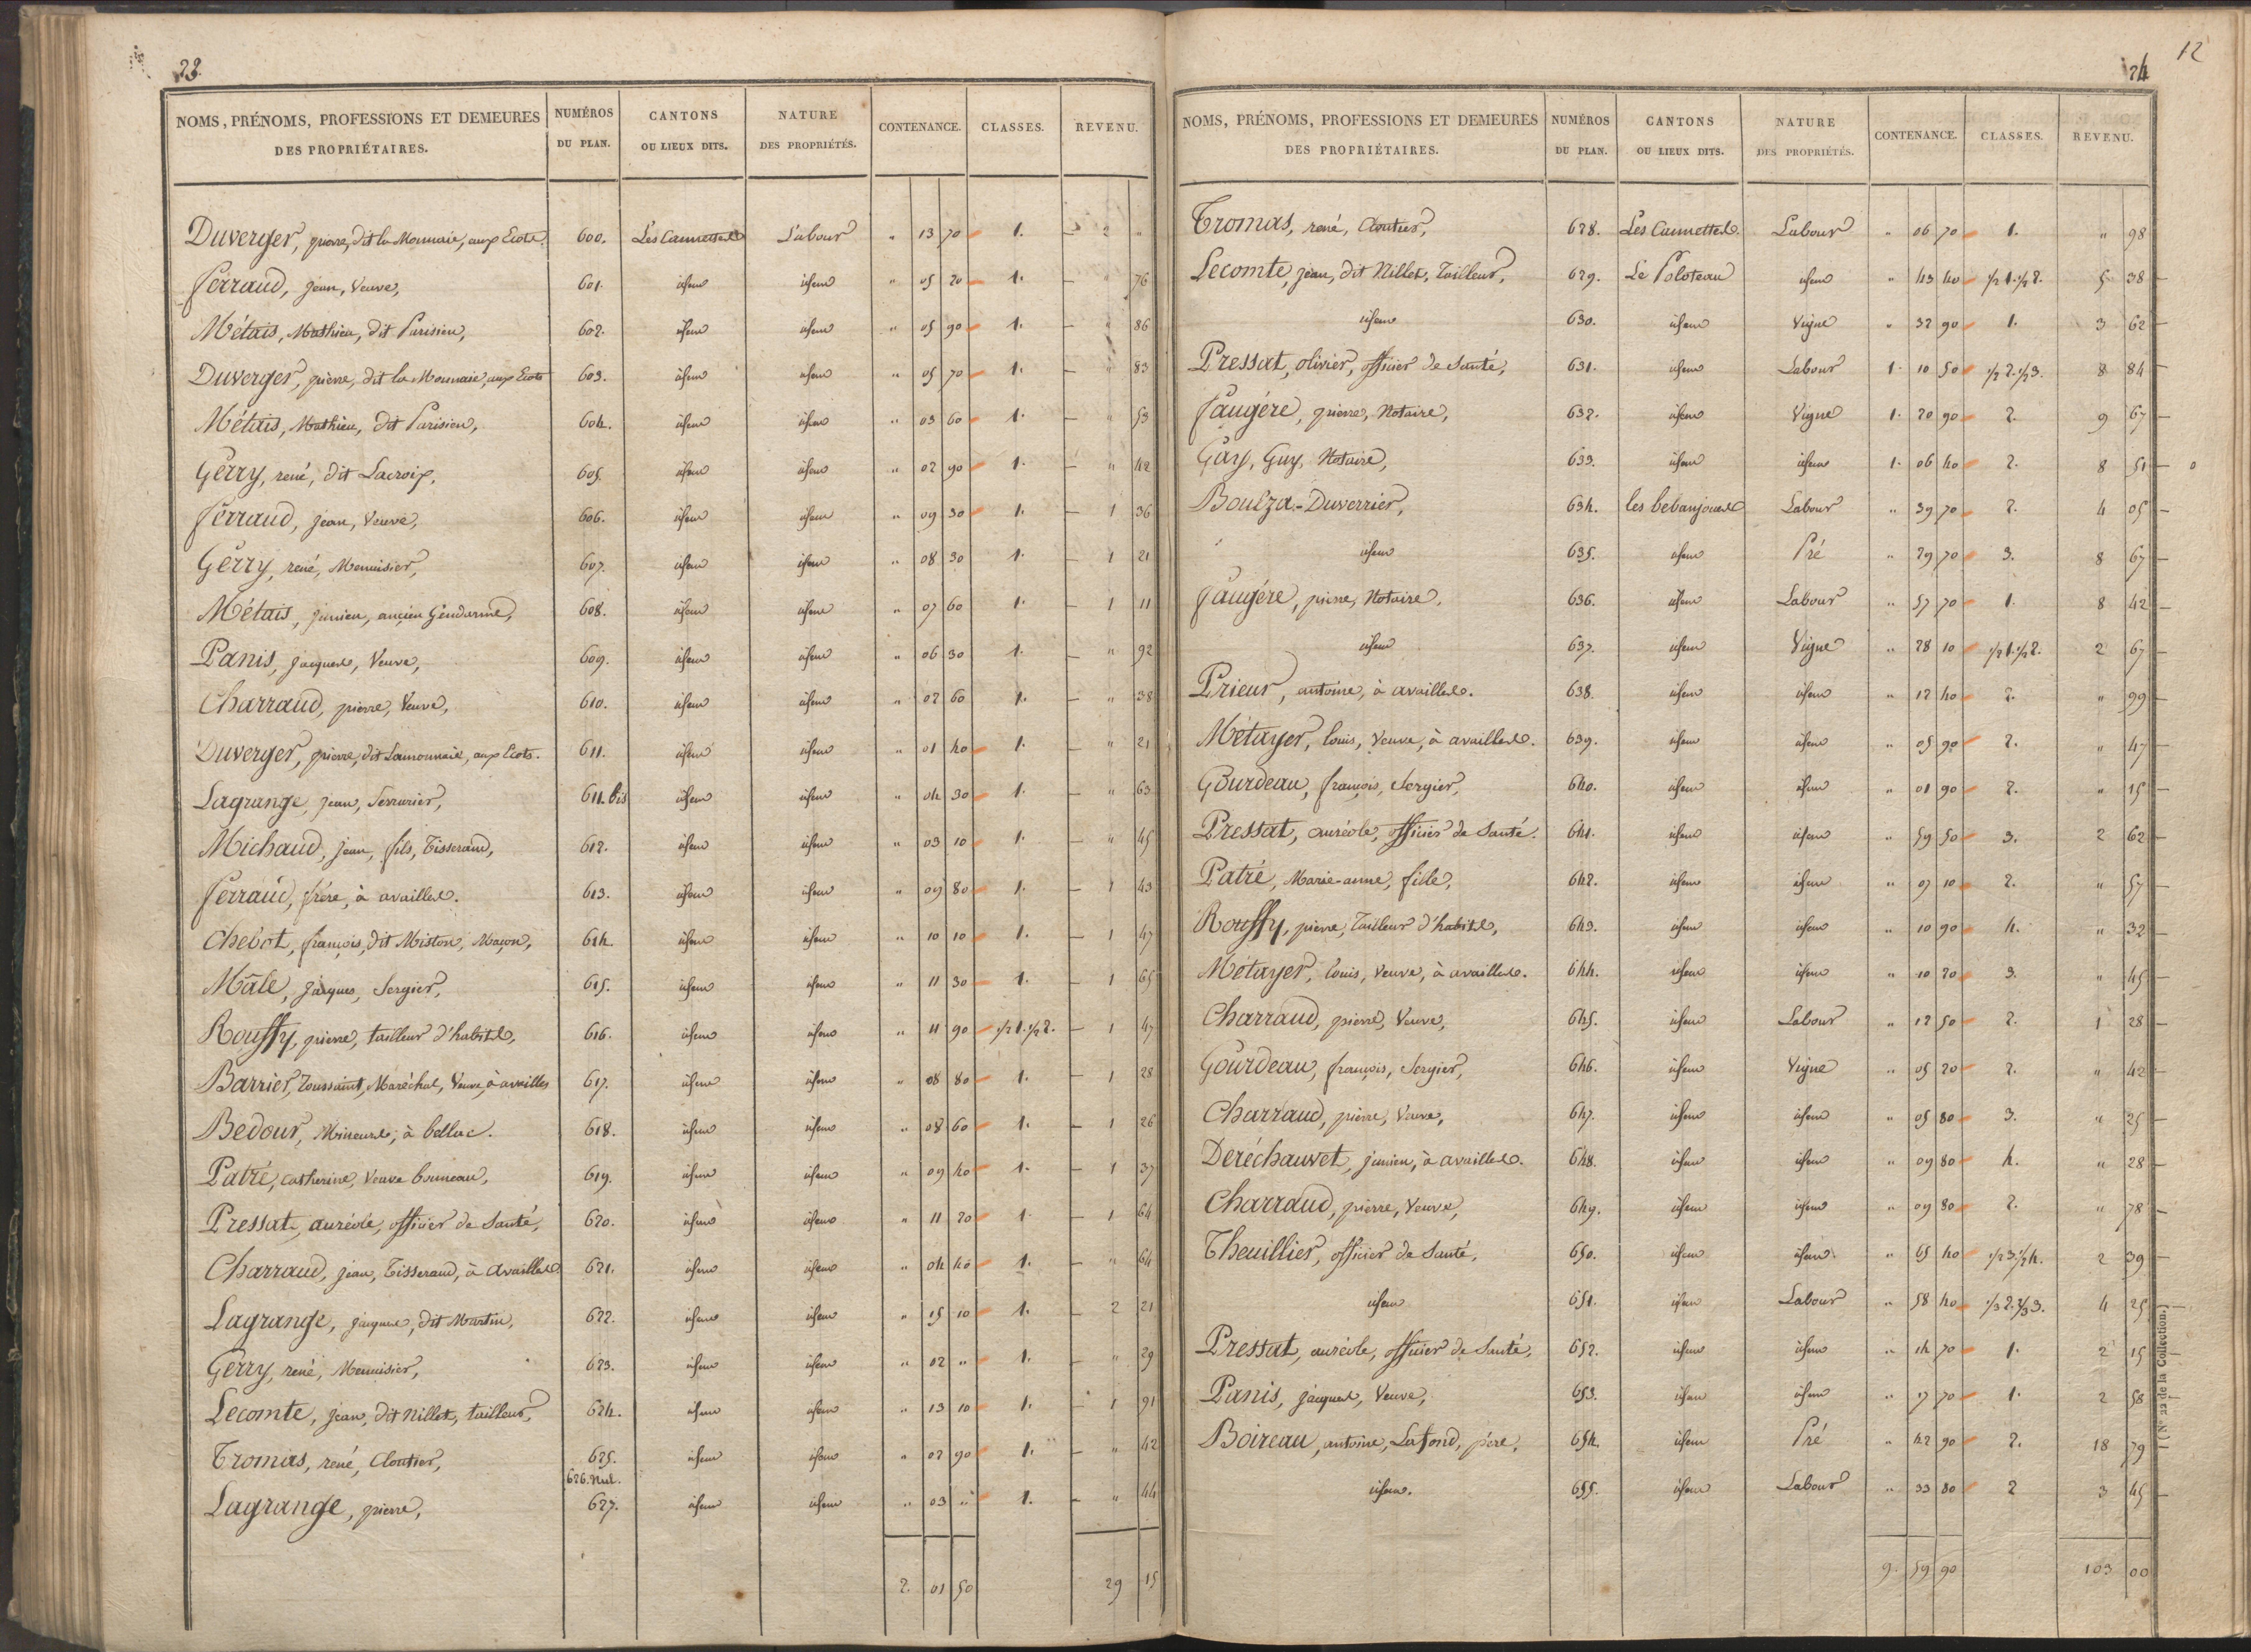 23.
NOMS, PRÉNOMS, PROFESSIONS ET DEMEURES DES PROPRIÉTAIRES. NUMÉROS DU PLAN. CANTONS OU LIEUX DITS. NATURE DES PROPRIÉTÉS. CONTENANCE. CLASSES. REVENU.
Duverger, pierre, dit la Monnaie, aux Ecots. 600. Les Cannettes Labour " 13 70 1. 2 "
Ferraud, jean, Veuve, 601. idem idem " 05 20 1. " 76
Métais, Mathieu, dit Parisien, 602. idem idem " 05 90 1. " 86
Duverger, pierre, dit la Monnaie, aux Ecots 603. idem idem " 05 70 1. " 83
Métais, Mathieu, dit Parisien, 604. idem idem " 03 60 1. " 53
Gerry, rené, dit Lacroix, 605. idem idem " 02 90 1. " 42
Ferraud, jean, Veuve, 606. idem idem " 09 30 1. 1 36
Gerry, rené, Menuisier, 607. idem idem " 08 30 1. 1 21
Métais, junien, ancien Gendarme, 608. idem idem " 07 60 1. 1 11
Panis, jacques, Veuve, 609. idem idem " 06 30 1. " 92
Charraud, pierre, Veuve, 610. idem idem " 02 60 1. " 38
Duverger, pierre, dit Lamonnaie, aux Ecots. 611. idem idem " 01 40 1. " 21
Lagrange, jean, Serrurier, 611. bis idem idem " 04 30 1. " 63
Michaud, jean, fils, Tisserand, 612. idem idem " 03 10 1. " 45
Ferraud, frère, à availles. 613. idem idem " 09 80 1. 1 43
Chebot, françois, dit Miston, Maçon, 614. idem idem " 10 10 1. 1 47
Mâle, jacques, Sergier, 615. idem idem " 11 30 1. 1 65
Rouffy, pierre, tailleur d'habits, 616. idem idem " 11 90 1/2 1. 1/2 2. 1 47
Barrier, Toussaint, Maréchal, Veuve, à availles 617. idem idem " 08 80 1. 1 28
Bedour, Mineurs, à bellac. 618. idem idem " 08 60 1. 1 26
Patré, catherine, Veuve bonneau, 619. idem idem " 09 40 1. 1 37
Pressat, auréole, officier de Santé, 620. idem idem " 11 20 1. 1 64
Charraud, jean, Tisserand, à Availles. 621. idem idem " 04 40 1. " 64
Lagrange, jacques, dit Martin, 622. idem idem " 15 10 1. 2 21
Gerry, rené, Menuisier, 623. idem idem " 02 " 1. " 29
Lecomte, jean, dit Nillet, tailleur, 624. idem idem " 13 10 1. 1 91
Tromas, rené, Cloutier, 625. idem idem " 02 90 1. " 42
626. Nul.
Lagrange, pierre, 627. idem idem " 03 " 1. " 44
2. 01 50 29 15
12
24
NOMS, PRÉNOMS, PROFESSIONS ET DEMEURES DES PROPRIÉTAIRES. NUMÉROS DU PLAN. CANTONS OU LIEUX DITS. NATURE DES PROPRIÉTÉS. CONTENANCE. CLASSES. REVENU.
Tromas, rené, Cloutier, 628. Les Cannettes. Labour " 06 70 1. " 98
Lecomte, jean, dit Nillet, Tailleur, 629. Le Poloteau idem " 43 40 1/2 1. 1/2 2. 5 38
idem 630. idem Vigne " 32 90 1. 3 62
Pressat, olivier, officier de Santé, 631. idem Labour 1. 10 50 1/2 2. 1/2 3. 8 84
Faugére, pierre, Notaire, 632. idem Vigne 1. 20 90 2. 9 67
Gay, Guy, Notaire, 633. idem idem 1. 06 40 2. 8 51 0
Boulza-Duverrier, 634. les bebanjoues Labour " 39 70 2. 4 05
idem 635. idem Pré " 29 70 3. 8 67
Faugére, pierre, Notaire, 636. idem Labour " 57 70 1. 8 42
idem 637. idem Vigne " 28 10 1/2 1. 1/2 2. 2 67
Prieur, antoine, à availles. 638. idem idem " 12 40 2. " 99
Métayer, louis, Veuve, à availles. 639. idem idem " 05 90 2. " 47
Gourdeau, françois, Sergier, 640. idem idem " 01 90 2. " 15
Pressat, auréole, officier de Santé. 641. idem idem " 59 50 3. 2 62
Patré, Marie-anne, fille, 642. idem idem " 07 10 2. " 57
Rouffy, pierre, Tailleur d'habits, 643. idem idem " 10 90 4. " 32
Métayer, louis, Veuve, à availles. 644. idem idem " 10 20 3. " 45
Charraud, pierre, Veuve, 645. idem Labour " 12 50 2. 1 28
Gourdeau, françois, Sergier, 646. idem Vigne " 05 20 2. " 42
Charraud, pierre, Veuve, 647. idem idem " 05 80 3. " 25
Deréchauvet, junien, à availles. 648. idem idem " 09 80 4. " 28
Charraud, pierre, Veuve, 649. idem idem " 09 80 2. " 78
Theuillier, officier de Santé, 650. idem idem " 65 40 1/2 3. 1/2 4. 2 39
idem 651. idem Labour " 58 40 1/3 2. 2/3 3. 4 25
Pressat, auréole, officier de Santé, 652. idem idem " 14 70 1. 2 15
Panis, jacques, Veuve, 653. idem idem " 17 70 1. 2 58
Boireau, antoine, Lafond, père, 654. idem Pré " 42 90 2. 18 79
idem. 655. idem Labour " 33 80 2 3 45
9. 59 90 103 00
(N° 22 de la Collection.)